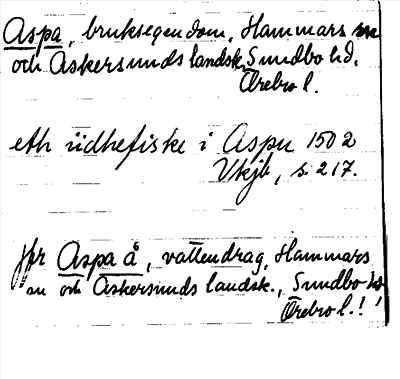 Aspa, bruksegendom, Hammars sn
och Askersunds landsk., Sundbo hd,
Örebro l.
eth iidhefiske i Aspu 1502
Vkjb, s. 217.
Jfr Aspa å, vattendrag, Hammars
sn och Askersunds landsk., Sundbo hd
Örebro l.!